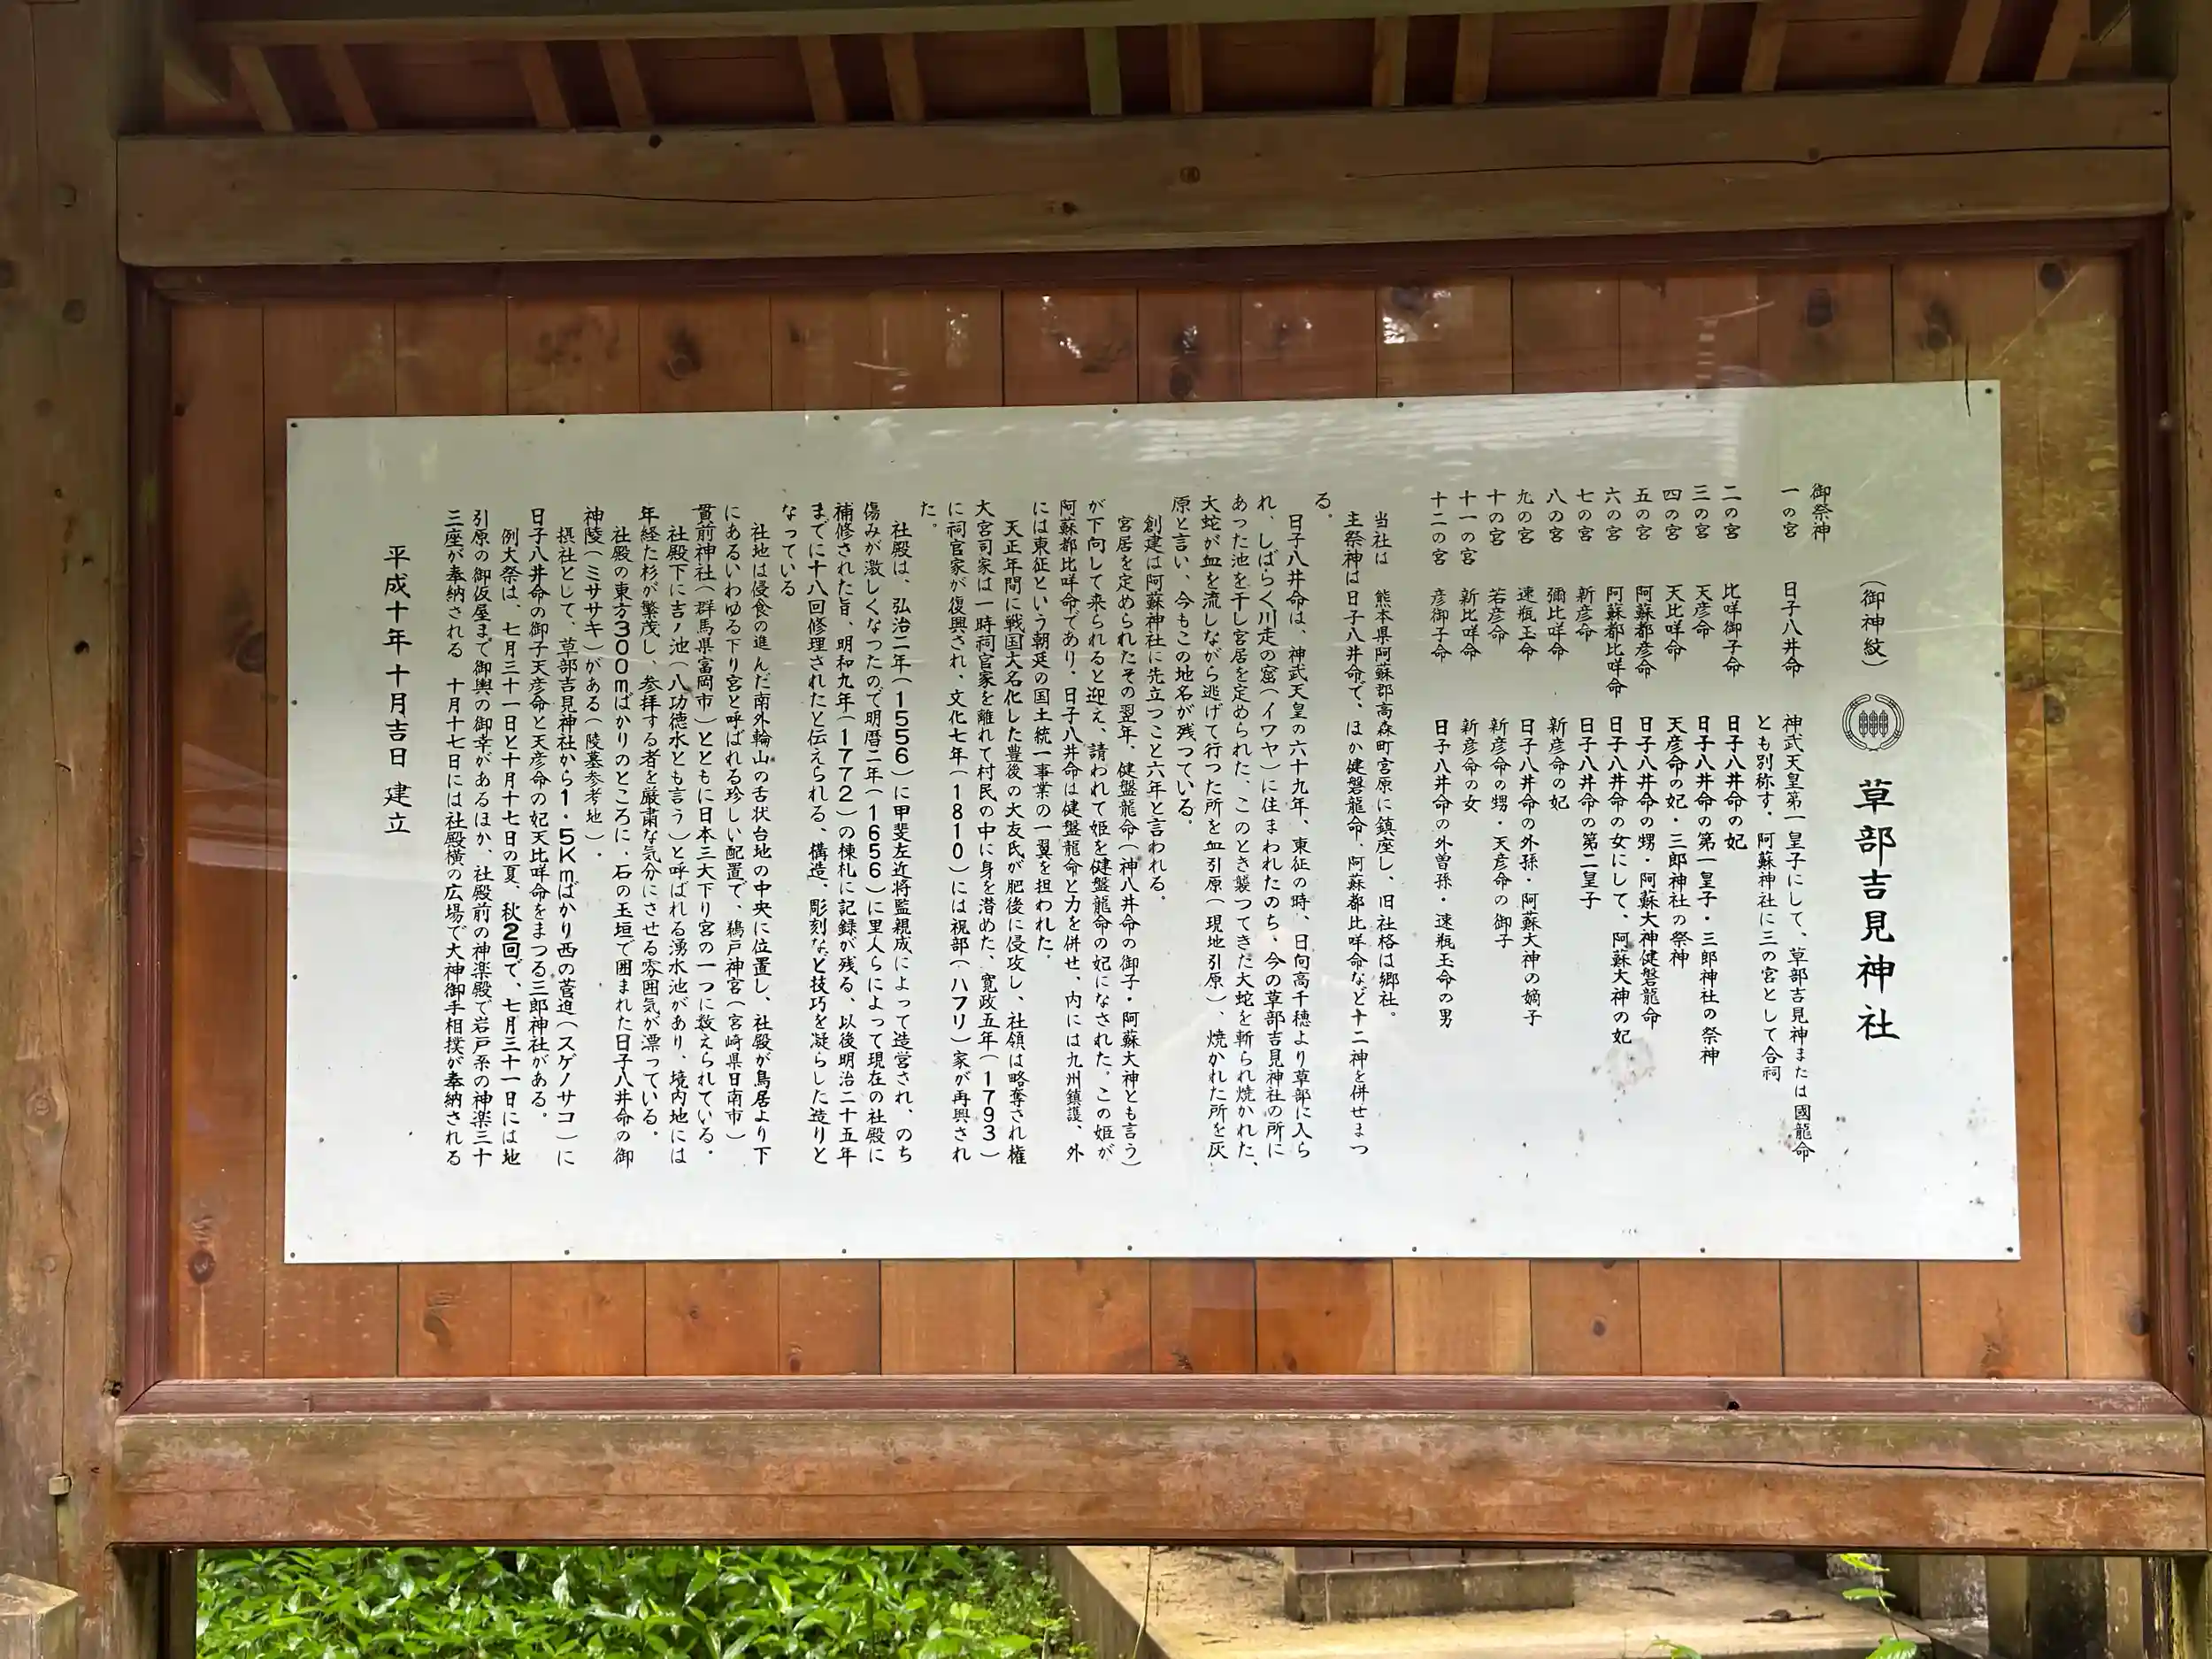 (御神紋) 草部吉見神社
御祭神
一の宮 日子八井命 神武天皇第一皇子にして、草部吉見神または國龍命
とも別称す。阿蘇神社に三の宮として合祠
二の宮 比咩御子命 日子八井命の妃
三の宮 天彦命 日子八井命の第一皇子・三郎神社の祭神
四の宮 天比咩命 天彦命の妃・三郎神社の祭神
五の宮 阿蘇都彦命 日子八井命の甥・阿蘇大神健磐龍命
六の宮 阿蘇都比咩命 日子八井命の女にして、阿蘇大神の妃
七の宮 新彦命 日子八井命の第二皇子
八の宮 彌比咩命 新彦命の妃
九の宮 速瓶玉命 日子八井命の外孫・阿蘇大神の嫡子
十の宮 若彦命 新彦命の甥・天彦命の御子
十一の宮 新比咩命 新彦命の女
十二の宮 彦御子命 日子八井命の外曽孫・速瓶玉命の男
当社は 熊本県阿蘇郡高森町宮原に鎮座し、旧社格は郷社。
主祭神は日子八井命で、ほか健磐龍命、阿蘇都比咩命など十二神を併せまつ
る。
日子八井命は、神武天皇の六十九年、東征の時、日向高千穂より草部に入ら
れ、しばらく川走の窟(イワヤ)に住まわれたのち、今の草部吉見神社の所に
あった池を干し宮居を定められた、このとき襲ってきた大蛇を斬られ焼かれた、
大蛇が血を流しながら逃げて行った所を血引原(現地引原)、焼かれた所を灰
原と言い、今もこの地名が残っている。
創建は阿蘇神社に先立つこと六年と言われる。
宮居を定められたその翌年、健盤龍命(神八井命の御子・阿蘇大神とも言う)
が下向して来られると迎え、請われて姫を健盤龍命の妃になされた。この姫が
阿蘇都比咩命であり、日子八井命は健盤龍命と力を併せ、内には九州鎮護、外
には東征という朝廷の国土統一事業の一翼を担われた。
天正年間に戦国大名化した豊後の大友氏が肥後に侵攻し、社領は略奪され権
大宮司家は一時祠官家を離れて村民の中に身を潜めた、寛政五年(1793)
に祠官家が復興され、文化七年(1810)には祝部(ハフリ)家が再興され
た。
社殿は、弘治二年(1556)に甲斐左近将監親成によって造営され、のち
傷みが激しくなつたので明暦二年(1656)に里人らによって現在の社殿に
補修された旨、明和九年(1772)の棟札に記録が残る、以後明治二十五年
までに十八回修理されたと伝えられる、構造、彫刻など技巧を凝らした造りと
なっている
社地は侵食の進んだ南外輪山の舌状台地の中央に位置し、社殿が鳥居より下
にあるいわゆる下り宮と呼ばれる珍しい配置で、鵜戸神宮(宮崎県日南市)
貫前神社(群馬県富岡市)とともに日本三大下り宮の一つに数えられている。
社殿下に吉ノ池(八功徳水とも言う)と呼ばれる湧水池があり、境内地には
年経た杉が繁茂し、参拝する者を厳粛な気分にさせる雰囲気が漂っている。
社殿の東方300mばかりのところに、石の玉垣で囲まれた日子八井命の御
神陵(ミササキ)がある(陵墓参考地)。
摂社として、草部吉見神社から1・5Kmばかり西の菅迫(スゲノサコ)に
日子八井命の御子天彦命と天彦命の妃天比咩命をまつる三郎神社がある。
例大祭は、七月三十一日と十月十七日の夏、秋2回で、七月三十一日には地
引原の御仮屋まで御輿の御幸があるほか、社殿前の神楽殿で岩戸系の神楽三十
三座が奉納される 十月十七日には社殿横の広場で大神御手相撲が奉納される
平成十年十月吉日 建立